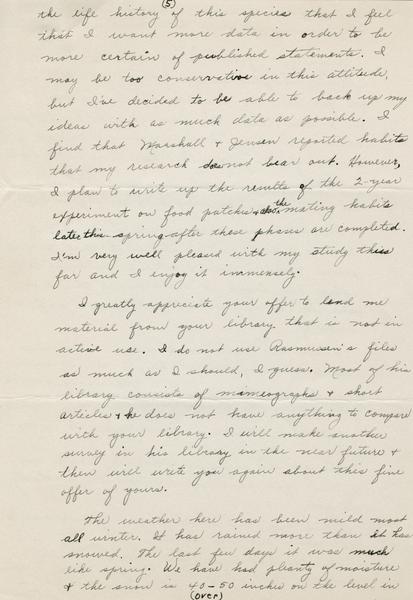 (5)
the life history of this species that I feel
that I want more data in order to be
more certain of published statements. I
may be too conservative in this attitude,
but I've decided to be able to back up my
ideas with as much data as possible. I
find that Marshall & Jensen reported habits
that my research does not bear out. However,
I plan to write up the results of the 2-year
experiment on food patches & also the mating habits
late this spring after these phases are completed.
I'm very well pleased with my study thus
far and I enjoy it immensely.
I greatly appreciate your offer to lend me
material from your library that is not in
active use. I do not use Rasmussen's files
as much as I should, I guess. Most of his
library consists of mimeographs & short
articles & he does not have anything to compare
with your library. I will make another
survey in his library in the near future &
then will write you again about this fine
offer of yours.
The weather here has been mild most
all winter. It has rained more than it has
snowed. The last few days it was much
like spring. We have had plenty of moisture
& the snow is 40-50 inches on the level in
(over)